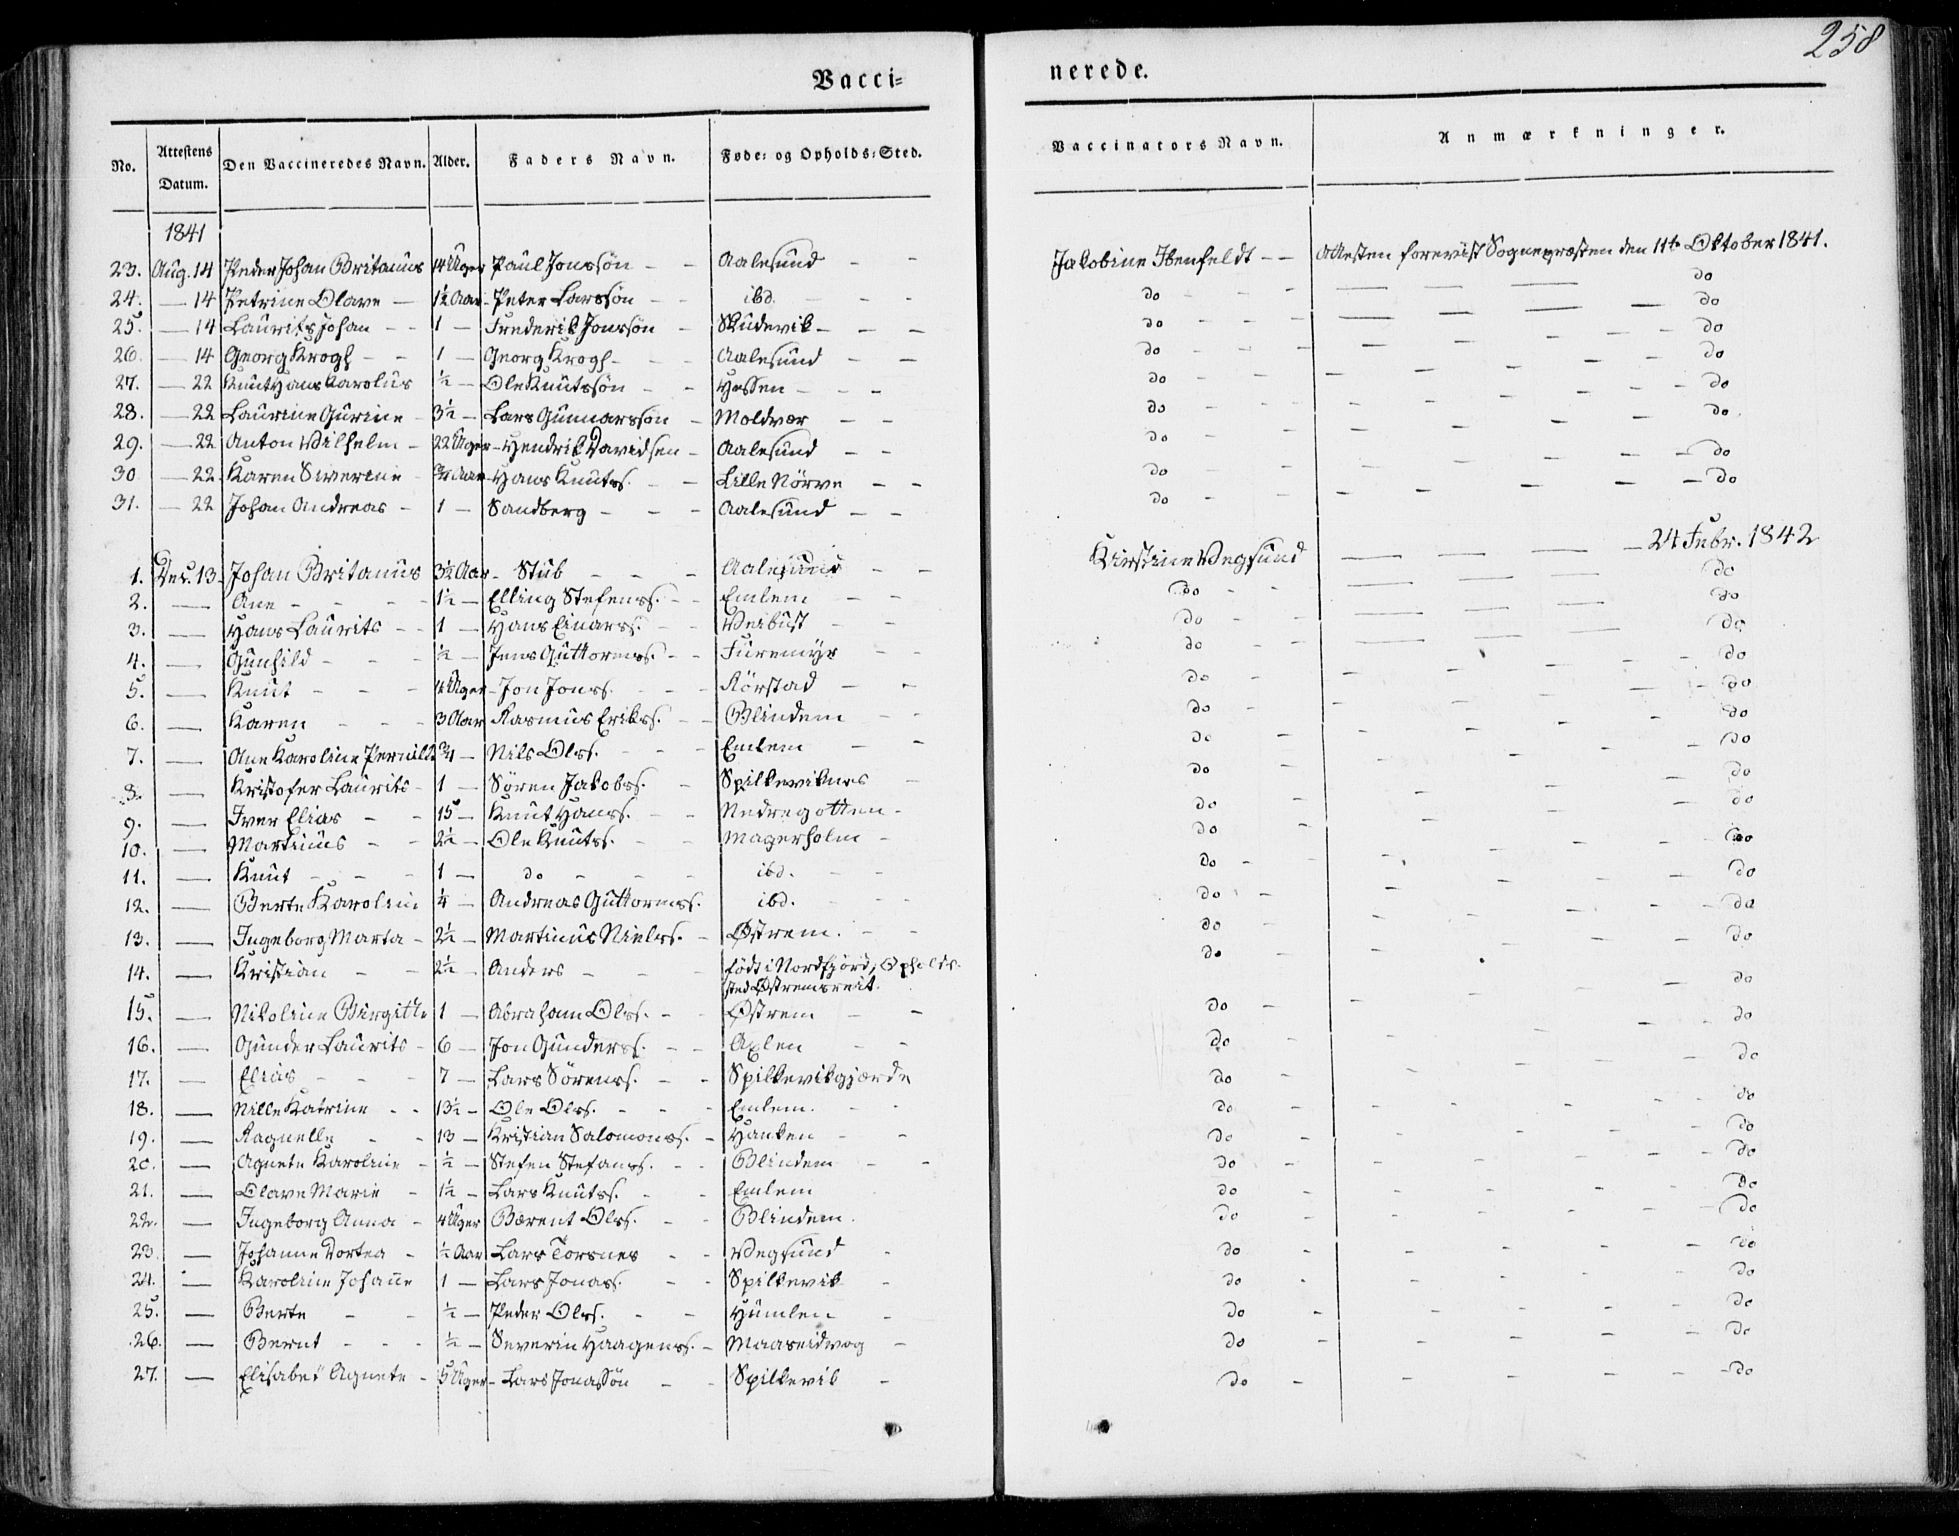 258
Vacci=
nerede.
No. Attestens Datum. Den Vaccineredes Navn. Alder. Faders Navn. Føde= og Opholds=Sted. Vaccinators Navn. Anmærkninger.
1841
23. Aug. 14 Peder Johan Britanus 14 Uger Paul Jonssön Aalesund Jakobine Ibenfeldt Attesten forevist Sognepræsten den 11te Oktober 1841.
24. — 14 Petrine Olave 1½ Aar Peter Larssön ibd. do do
25. — 14 Laurits Johan 1 — Frederik Jonssön Skudevik do do
26. — 14 Georg Krogh 1 — Georg Krogh Aalesund do do
27. — 22 Knut Hans Karolus ½ — Ole Knutssön Hessen do do
28. — 22 Laurine Gurine 3½ — Lars Gunnarssön Moldvær do do
29. — 22 Anton Wilhelm 22 Uger Hendrik Davidsen Aalesund do do
30 — 22 Karen Siverine ¾ Aar Hans Knuts. Lille Nörve do do
31. — 22 Johan Andreas 1 — Sandberg Aalesund do do
1. Dec. 13 Johan Britanus 3½ Aar Stub Aalesund Kirstine Vegsund 24 Febr. 1842
2. — Ane 1½ — Elling Stefens. Emlem do do
3. — Hans Laurits 1 — Hans Einars. Veibust do do
4. — Gunhild ½ — Jens Guttorms. Furemyr do do
5. — Knut Uger Jon Jons. Rörstad do do
6. — Karen 3 Aar Rasmus Eriks. Blindem do do
7. — Ane Karoline Pernille ¾ — Nils Ols. Emlem do do
8. — Kristofer Laurits 1 — Sören Jakobs. Spilkeviknes do do
9. — Iver Elias 15 — Knut Hans. Nedregotten do do
10. — Martinus 2½ — Ole Knuts. Magerholm do do
11. — Knut 1 — do ibd. do do
12. — Berte Karoline ¼ — Andreas Guttorms. ibd. do do
13. — Ingeborg Marta 2½ — Martinus Niels. Østrem. do do
14. — Kristian 2½ — Anders født i Nordfjord, Opholds-
sted Østremsreit. do do
15. — Nikoline Birgitte 1 — Abraham Ols. Østrem do do
16. — Gunder Laurits 6 — Jon Gunders. Axlen do do
17. — Elias 7 — Lars Sörens. Spilkevikgjærde do do
18. — Nille Katrine 13½ — Ole Ols. Emlem. do do
19. — Ragnelle 13 — Kristian Salomons. Hanken do do
20. — Agnete Karoline ½ — Stefen Stefans. Blindem do do
21. — Olave Marie 1½ — Lars Knuts. Emlem do do
22. — Ingeborg Anna 4 Uger Bærent Ols. Blindem. do do
23. — Johanne Dortea ½ Aar Lars Torsnes Vegsund do do
24. — Karoline Johane 1 — Lars Jonas. Spilkevik do do
25. — Berte ½ — Peder Ols. Humlen do do
26. — Bernt ½ — Severin Haagens. Maaseidvog do do
27. — Elisabet Agnete 5 Uger Lars Jonassön Spilkevik do do